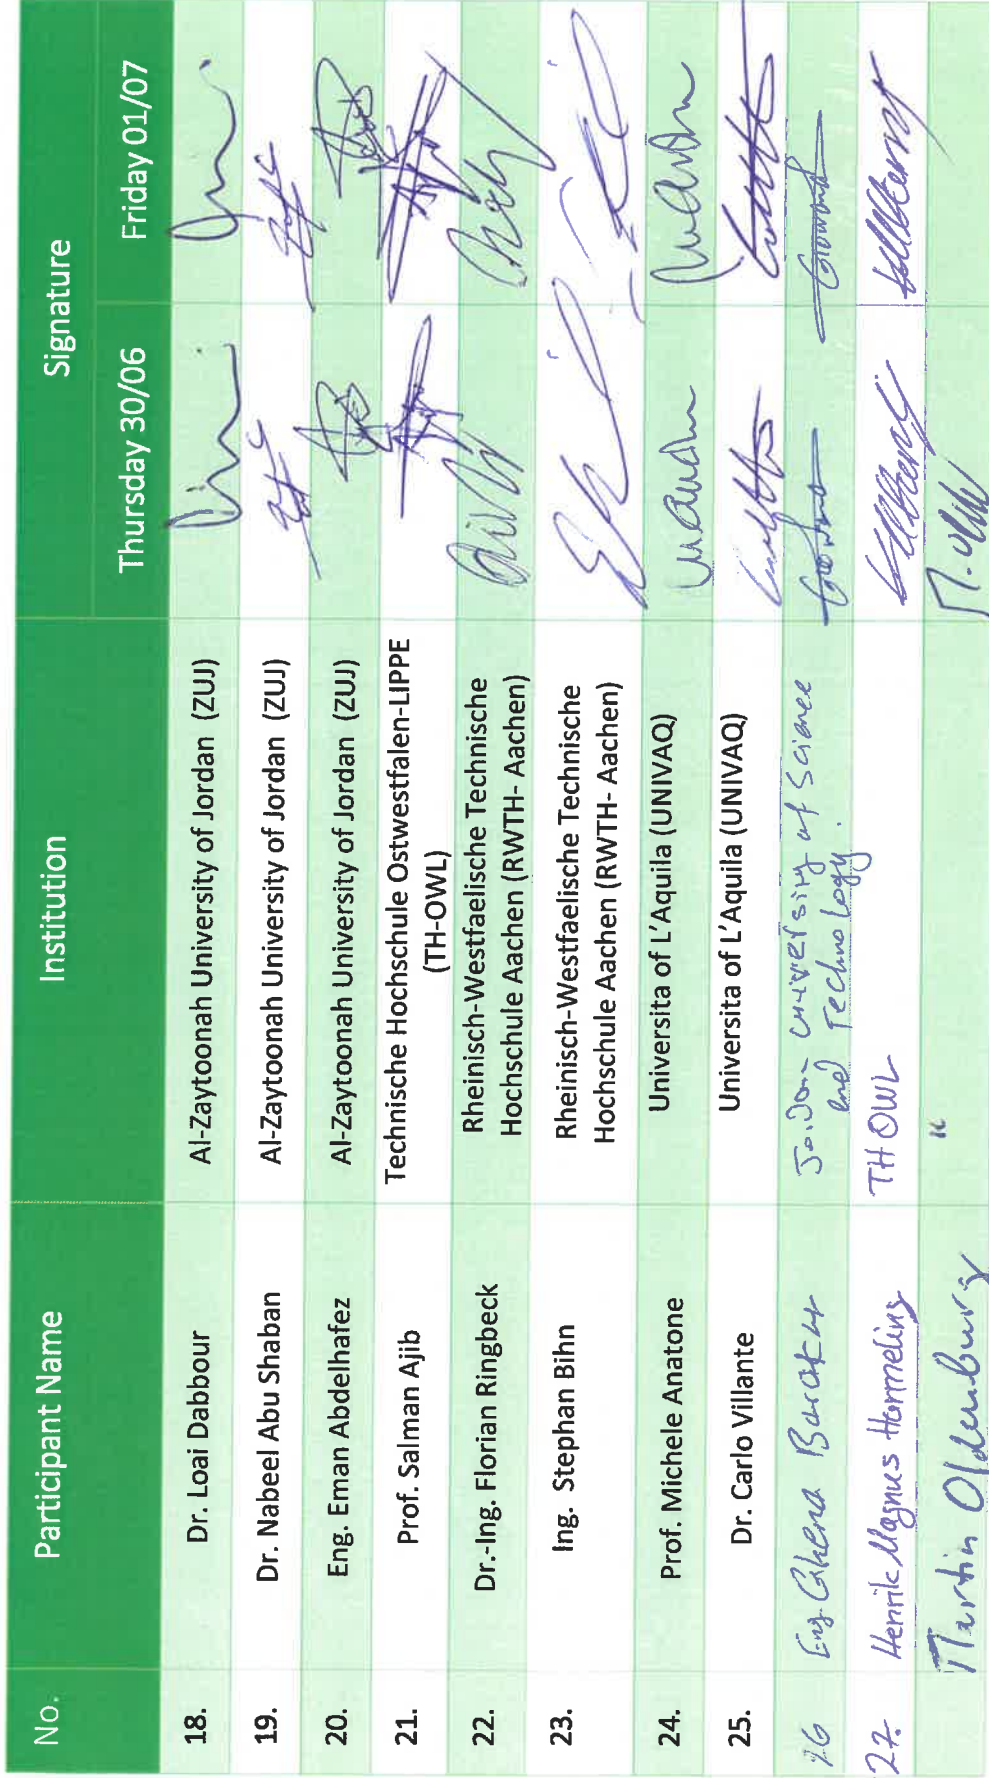 No. Participant Name Institution Signature
Thursday 30/06 Friday 01/07
18. Dr. Loai Dabbour Al-Zaytoonah University of Jordan (ZUJ)
19. Dr. Nabeel Abu Shaban Al-Zaytoonah University of Jordan (ZUJ)
20. Eng. Eman Abdelhafez Al-Zaytoonah University of Jordan (ZUJ)
21. Prof. Salman Ajib Technische Hochschule Ostwestfalen-LIPPE
(TH-OWL)
22. Dr.-Ing. Florian Ringbeck Rheinisch-Westfaelische Technische
Hochschule Aachen (RWTH- Aachen)
23. Ing. Stephan Bihn Rheinisch-Westfaelische Technische
Hochschule Aachen (RWTH- Aachen)
24. Prof. Michele Anatone Universita of L'Aquila (UNIVAQ)
25. Dr. Carlo Villante Universita of L'Aquila (UNIVAQ)
26 Eng. Ghena Barakat Jordan University of Science
and Technology.
27. Henrik Magnus Hormeling TH OWL
Martin Oldenburg "